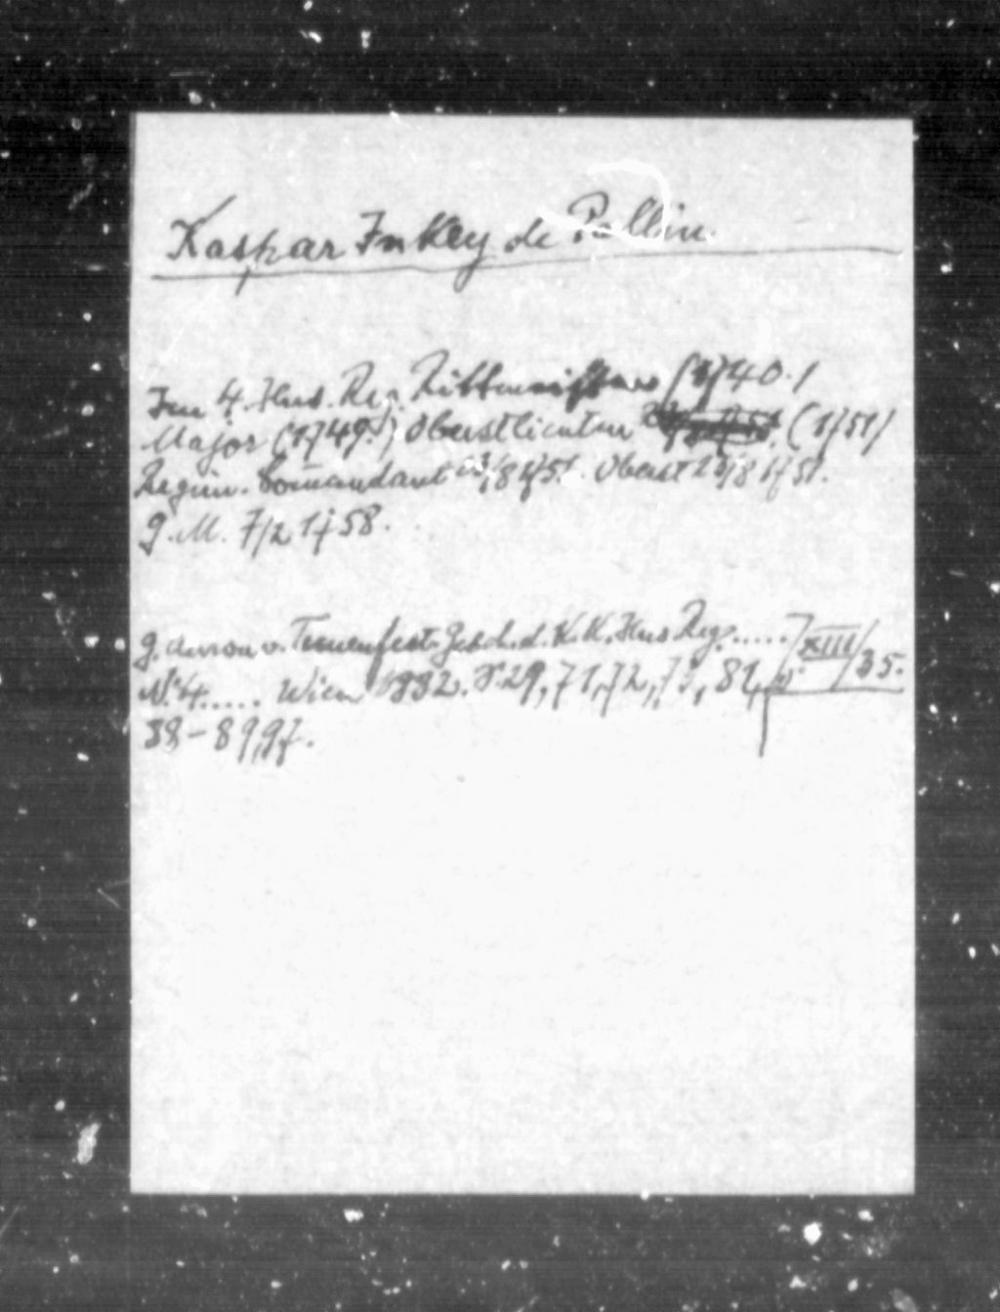 Kaspar Inkey de Pallin.
Im 4. Hus. Reg. Rittmeister (1740.)
Major (1749.) Oberstlieutn (1751)
Regim. Commandant 23/8 1751. Oberst 23/8 1751.
G.M. 7/2 1758.
G. Amon v. Treuenfest. Gesch. d. K.K. Hus Reg. ..... XIII/35.
N. 4. .... Wien 1882. S. 29, 71, 72, 81,
88-89, 97.